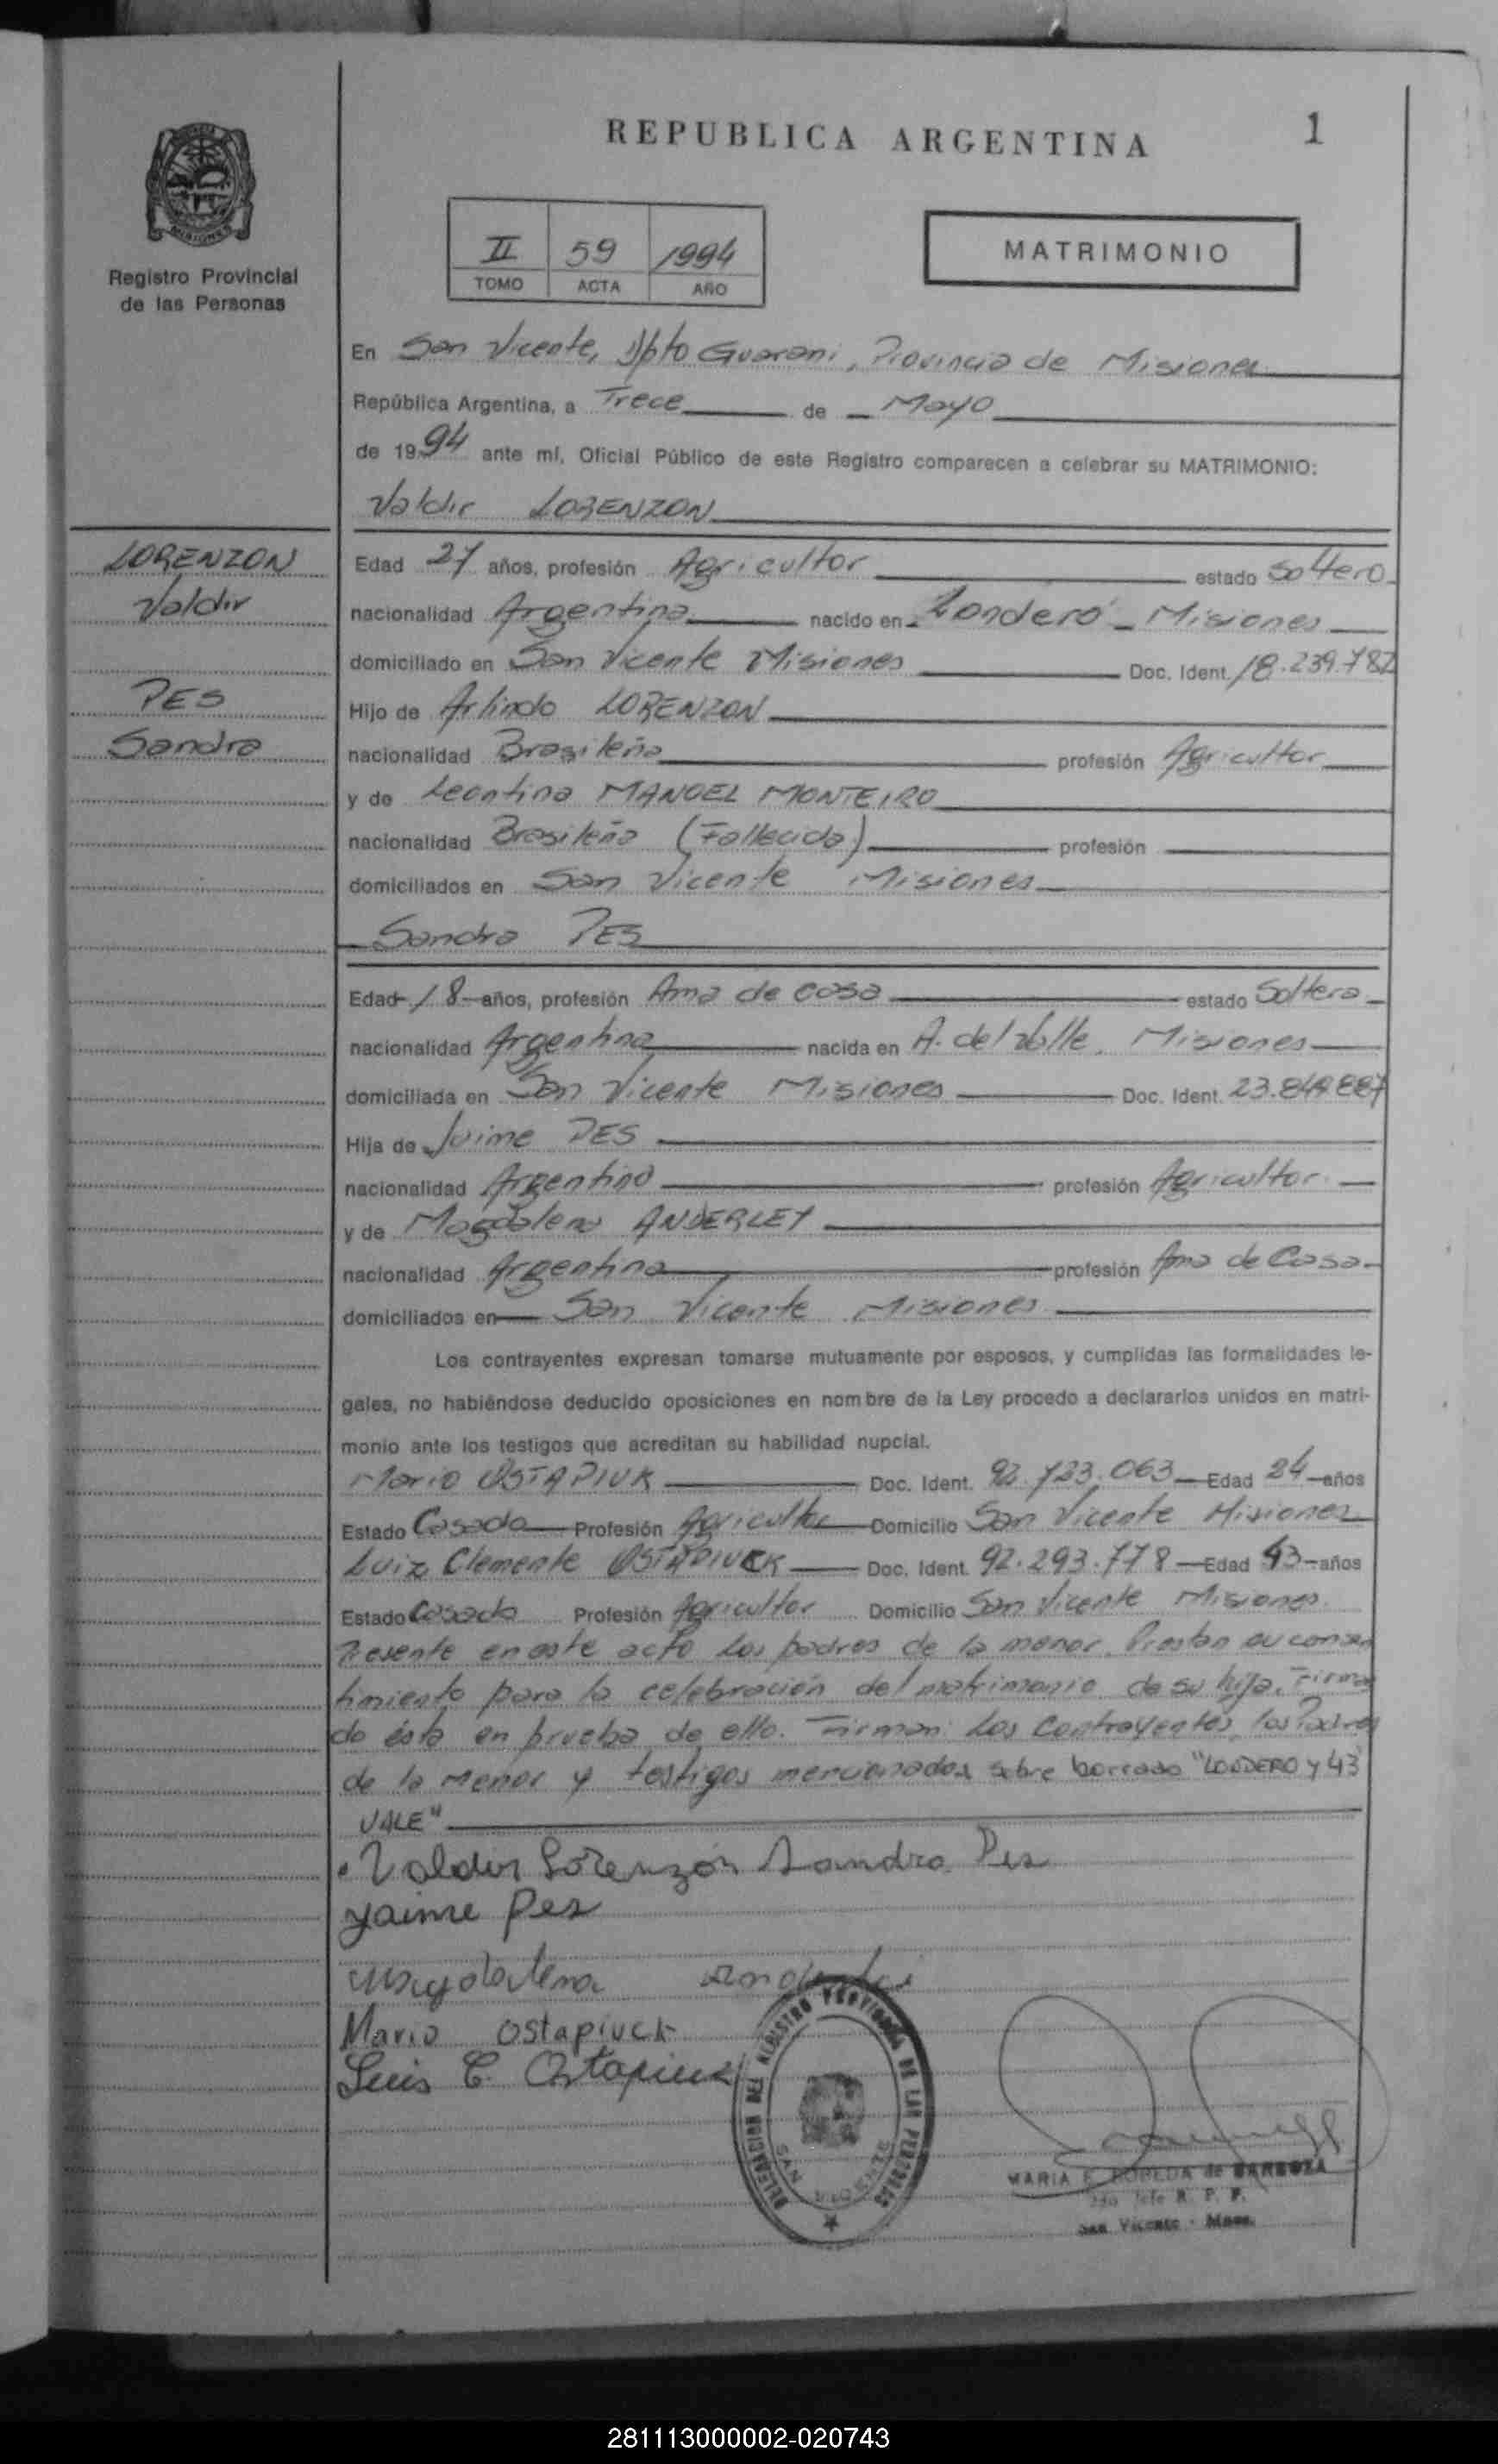 REPUBLICA ARGENTINA
1
MISIONES
Registro Provincial
de las Personas
II 59 1994
TOMO ACTA AÑO
MATRIMONIO
En San Vicente, Dpto Guarani, Provincia de Misiones
República Argentina, a Trece de Mayo
de 1994 ante mí, Oficial Público de este Registro comparecen a celebrar su MATRIMONIO:
Valdir LORENZON
LORENZON
Valdir
PES
Sandra
Edad 27 años, profesión Agricultor estado Soltero
nacionalidad Argentina nacido en Londero - Misiones
domiciliado en San Vicente Misiones Doc. Ident. 18.239.782
Hijo de Arlindo LORENZON
nacionalidad Brasileña profesión Agricultor
y de Leontina MANOEL MONTEIRO
nacionalidad Brasileña (Fallecida) profesión
domiciliados en San Vicente Misiones
Sandra PES
Edad 18 años, profesión Ama de casa estado Soltera
nacionalidad Argentina nacida en A. del Valle, Misiones
domiciliada en San Vicente Misiones Doc. Ident. 23.849.887
Hija de Jaime PES
nacionalidad Argentino profesión Agricultor
y de Magdalena ANDERLEY
nacionalidad Argentina profesión Ama de Casa
domiciliados en San Vicente Misiones
Los contrayentes expresan tomarse mutuamente por esposos, y cumplidas las formalidades le-
gales, no habiéndose deducido oposiciones en nombre de la Ley procedo a declararlos unidos en matri-
monio ante los testigos que acreditan su habilidad nupcial.
Mario OSTAPIUK Doc. Ident. 92.723.063 Edad 24 años
Estado Casado Profesión Agricultor Domicilio San Vicente Misiones
Luiz Clemente OSTAPIUCK Doc. Ident. 92.293.778 Edad 43 años
Estado Casado Profesión Agricultor Domicilio San Vicente Misiones
Presente en este acto los padres de la menor. Prestan su consen
timiento para la celebración del matrimonio de su hija. Firman
do ésta en prueba de ello. Firman: Los Contrayentes, los Padres
de la menor y testigos mencionados sobre borrado "LONDERO y 43
VALE"
Valdir Lorenzón Sandra Pes
Jaime Pes
Magdalena
Mario Ostapiuck
Luis C. Ostapiuk
DELEGACION DEL REGISTRO PROVINCIAL DE LAS PERSONAS
SAN VICENTE
MARIA E. de BARBOZA
Jefe R. P. P.
San Vicente - Mnes.
281113000002-020743